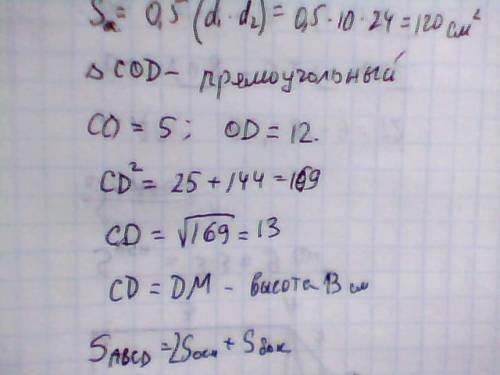 Sₐ = 0,5 (d₁ · d₂) = 0,5 · 10 · 24 = 120 см²
△ COD – прямоугольный
CO = 5 ; OD = 12.
CD² = 25 + 144 = 169
CD = √169 = 13
CD = DM – высота 13 см
S ABCD = 2Sосн + Sбок